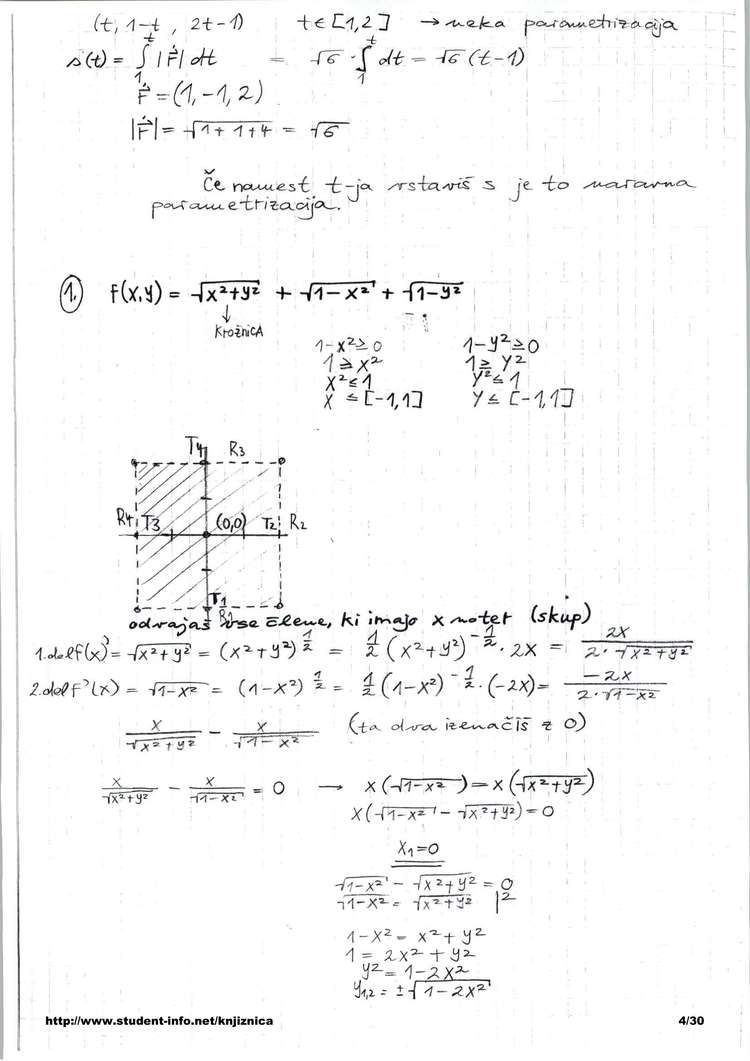 (t, 1-t, 2t-1) t∈[1,2] → neka parametrizacija
s(t) = ∫₁ᵗ |ṙ⃗| dt = √6 · ∫₁ᵗ dt = √6 (t-1)
ṙ⃗ = (1, -1, 2)
|ṙ⃗| = √(1+1+4) = √6
Če namest t-ja vstaviš s je to naravna
parametrizacija.
1. f(x,y) = √(x²+y²) + √(1-x²) + √(1-y²)
↓
KROŽNICA
1-x² ≥ 0 1-y² ≥ 0
1 ≥ x² 1 ≥ y²
x² ≤ 1 y² ≤ 1
x ≤ [-1,1] y ≤ [-1,1]
T4 R3
R4 T3 (0,0) T2 R2
T1
odvajaš vse člene, ki imajo x noter (skup)
1.del f(x)' = √(x²+y²) = (x²+y²)^½ = ½ (x²+y²)^-½ · 2x = 2x / (2·√(x²+y²))
2.del f'(x) = √(1-x²) = (1-x²)^½ = ½ (1-x²)^-½ · (-2x) = -2x / (2·√(1-x²))
x/√(x²+y²) - x/√(1-x²) (ta dva izenačiš z 0)
x/√(x²+y²) - x/√(1-x²) = 0 → x(√(1-x²)) = x(√(x²+y²))
x(√(1-x²) - √(x²+y²)) = 0
x₁=0
√(1-x²) - √(x²+y²) = 0
√(1-x²) = √(x²+y²) |²
1-x² = x²+y²
1 = 2x²+y²
y² = 1-2x²
y₁,₂ = ±√(1-2x²)
http://www.student-info.net/knjiznica 4/30